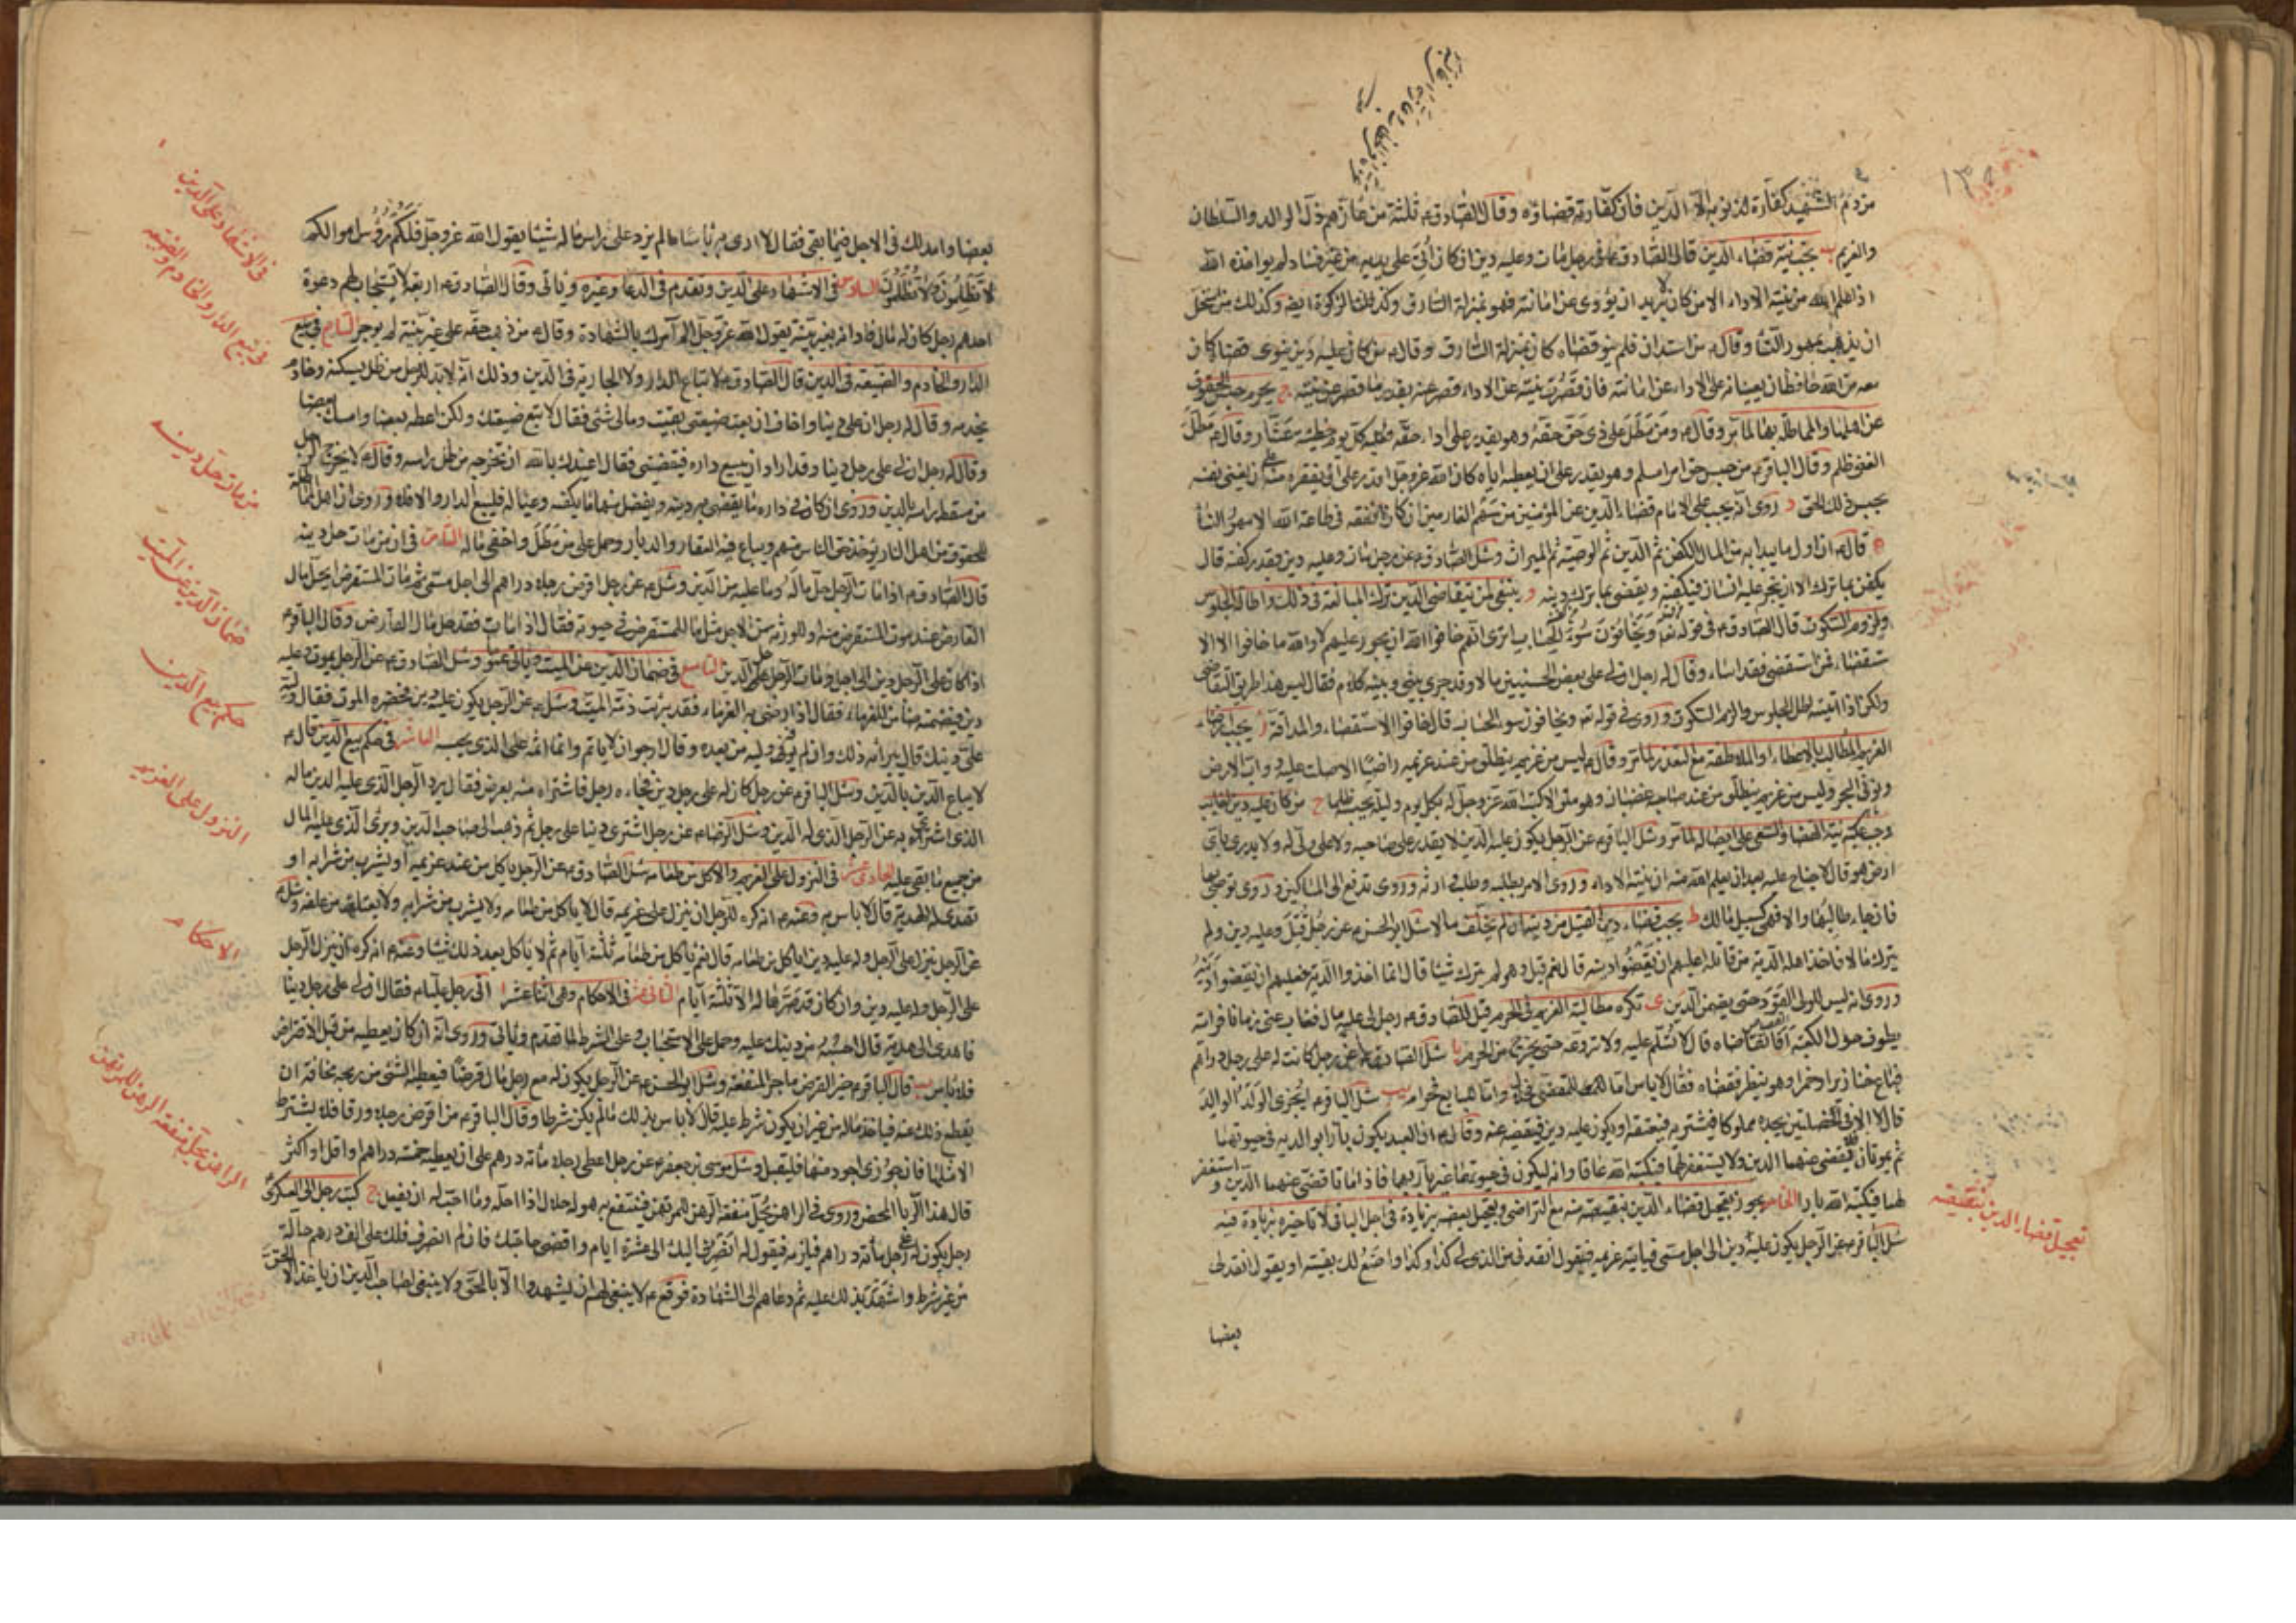 من دم الشهيد كفارة لذنوبه الا الدين فان كفارته قضاؤه وقال الصادق ع ثلثة من عازهم ذل الوالد والسلطان
والغريم ب يجب نية قضاء الدين قال الصادق ع في رجل مات وعليه دين ان كان أتى على يديه من غير فساد لم يؤاخذه الله
اذا علم الله من نيته الاداء الا من كان لا يريد ان يؤدى عن امانته فهو بمنزلة السارق وكذلك الزكوة ايضا وكذلك من استحل
ان يذهب بمهور النساء وقال ع من استدان فلم ينو قضاه كان بمنزلة السارق وقال ع من كان عليه دين ينوى قضاه كان
معه من الله حافظان يعينانه على الاداء عن امانته فان قصرت نيته عن الاداء قصر عنه بقدر ما قصر من نيته ج يحرم حبس الحقوق
عن اهلها والمماطلة بها لما مر وقال ع ومن مطل على ذى حق حقه وهو يقدر على اداء حقه فعليه كل يوم خطيئة عشار وقال ع مطل
الغنى ظلم وقال الباقر ع من حبس حق امرء مسلم وهو يقدر على ان يعطيه اياه كان الله عز وجل اقدر على ان يفقره منه على ان يغنى نفسه
بحبس ذلك الحق د روى انه يجب على الامام قضاء الدين عن المؤمنين من سهم الغارمين ان كان انفقه في طاعة الله الا مهور النسا
ه قال ع ان اول ما يبدا به من المال الكفن ثم الدين ثم الوصية ثم الميراث وسئل الصادق ع عن رجل مات وعليه دين بقدر كفنه قال
يكفن بما ترك الا ان يتجر عليه انسان فيكفنه ويقضى بما ترك دينه و ينبغى لمن يتقاضى الدين ترك المبالغة في ذلك واطالة الجلوس
ولزوم السكوت قال الصادق ع في قوله تعالى ويخافون سوء الحساب اترى انهم خافوا الله ان يجور عليهم لا والله ما خافوا الا الا
ستقضاء فمن استقضى فقد اساء وقال له رجل ان لى على بعض الحسنيين مالا وقد جرى بينى وبينه كلام فقال ليس هذا طريق التقاضى
ولكن اذا اتيته اطل الجلوس والزم السكوت وروى في قوله تعالى ويخافون سوء الحساب قال خافوا الاستقصاء والمداقة ز يجب ارضاء
الغريم المطالب بالاعطاء او الملاطفة مع التعذر لما مر وقال ع ليس من غريم ينطلق من عند غريمه راضيا الا صلت عليه دواب الارض
ونون البحر وليس من غريم ينطلق من عند صاحبه غضبان وهو ملى الا كتب الله عز وجل له بكل يوم وليلة يحبسه ظلما ح من كان عليه دين لغائب
وجب عليه نية القضا والسعى على ايصاله لما مر وسئل الباقر ع عن الرجل يكون عليه الدين لا يقدر على صاحبه ولا على ولى له ولا يدرى باى
ارض هو قال لا جناح عليه بعد ان يعلم الله منه ان نيته الاداء وروى الامر بطلبه وطلب وارثه وروى تدفع الى المساكين وروى يوصى بها
فان جاء طالبها والا فهى كسبيل مالك ط يجب قضاء دين القتيل من ديته ان لم يخلف مالا سئل ابو الحسن ع عن رجل قتل وعليه دين ولم
يترك مالا فاخذ اهله الدية من قاتله اعليهم ان يقضوا دينه قال نعم قيل وهو لم يترك شيئا قال انما اخذوا الدية فعليهم ان يقضوا دينه
وروى انه ليس للولى القود حتى يضمن الدين ى تكره مطالبة الغريم في الحرم قيل للصادق ع رجل لى عليه مال فغاب عنى زمانا فرايته
يطوف حول الكعبة افاتقاضاه قال لا تسلم عليه ولا تروعه حتى يخرج من الحرم يا سئل الصادق ع عن رجل كانت له على رجل دراهم
فباع خنازير او خمرا وهو ينظر فقضاه فقال لا باس اما للمقتضى فحلال واما للبايع فحرام يب سئل الباقر ع ايجزى الولد الوالد
قال لا الا في خصلتين يجده مملوكا فيشتريه فيعتقه او يكون عليه دين فيقضيه عنه وقال ع ان العبد يكون بارا بوالديه في حيوتهما
ثم يموتان فلا يقضى عنهما الدين ولا يستغفر لهما فيكتبه الله عاقا وانه ليكون في حيوتهما غير بار بهما فاذا ماتا قضى عنهما الدين واستغفر
لهما فيكتبه الله بارا الخامس يجوز تعجيل قضاء الدين بنقيصة منه مع التراضى وتعجيل بعضه بزيادة في اجل الباقى لا تاخيره بزيادة فيه
سئل الباقر ع عن الرجل يكون عليه دين الى اجل مسمى فياتيه غريمه فيقول انقد لى من الذى لى كذا وكذا واضع لك بقيته او يقول انقد لى
بعضا
تعجيل قضاء الدين بنقيصة
بعضا وامد لك في الاجل فيما بقى فقال لا ارى به باسا ما لم يزد على راس ماله شيئا يقول الله عز وجل فلكم رؤس اموالكم
لا تظلمون ولا تظلمون السادس في الاشهاد على الدين وتقدم في الدعا وغيره وياتى وقال الصادق ع اربعة لا يستجاب لهم دعوة
احدهم رجل كان له مال فادانه بغير بينة يقول الله عز وجل الم آمرك بالشهادة وقال ع من ذهب حقه على غير بينة لم يوجر السابع في بيع
الدار والخادم والضيعة في الدين قال الصادق ع لا تباع الدار ولا الجارية في الدين وذلك انه لا بد للرجل من ظل يسكنه وخادم
يخدمه وقال له رجل ان على دينا واخاف ان بعت ضيعتى بقيت ومالى شئ فقال لا تبع ضيعتك ولكن اعطه بعضا وامسك بعضا
وقال له رجل ان لى على رجل دينا وقد اراد ان يبيع داره فيقضينى فقال اعيذك بالله ان تخرجه من ظل راسه وقال ع لا يخرج الرجل
من مسقط راسه بالدين وروى ان كان في داره ما يقضى به دينه ويفضل منها ما يكفيه وعياله فليبع الدار والا فلا وروى ان اهل المماطلة
للحقوق من اهل النار يؤخذ حق الناس منهم ويباع فيه العقار والديار وحمل على من مطل واخفى ماله الثامن في ان من مات حل دينه
قال الصادق ع اذا مات الرجل حل ماله وما عليه من الدين وسئل ع عن رجل اقرض رجلا دراهم الى اجل مسمى ثم مات المستقرض ايحل مال
القارض عند موت المستقرض منه او للورثة من الاجل مثل ما للمستقرض في حيوته فقال اذا مات فقد حل مال القارض وقال الباقر ع
اذا كان على الرجل دين الى اجل ومات الرجل حل الدين التاسع في ضمان الدين عن الميت وياتى عتق وسئل الصادق ع عن الرجل يموت وعليه
دين فيضمنه ضامن للغرماء فقال اذا رضى به الغرماء فقد برئت ذمة الميت وسئل ع عن الرجل يكون عليه دين فحضره الموت فقال وليه
على دينك قال يبرئه ذلك وان لم يوفه وليه من بعده وقال ارجو ان لا ياثم وانما اثمه على الذى يحبسه العاشر في حكم بيع الدين قال ع
لا يباع الدين بالدين وسئل الباقر ع عن رجل كان له على رجل دين فجاءه رجل فاشتراه منه بعرض فقال يرد الرجل الذى عليه الدين ماله
الذى اشتراه به عن الرجل الذى له الدين وسئل الرضا ع عن رجل اشترى دينا على رجل ثم ذهب الى صاحب الدين وبرئ الذى عليه المال
من جميع ما بقى عليه الحادى عشر في النزول على الغريم والاكل من طعامه سئل الصادق ع عن الرجل ياكل من عند غريمه او يشرب من شرابه او
تهدى له الهدية قال لا باس به وعنه ع انه كره للرجل ان ينزل على غريمه قال لا ياكل من طعامه ولا يشرب من شرابه ولا يعتلف من علفه وسئل ع
عن الرجل ينزل على الرجل وله عليه دين اياكل من طعامه قال نعم ياكل من طعامه ثلثة ايام ثم لا ياكل بعد ذلك شيئا وعنه ع انه كره ان ينزل الرجل
على الرجل وله عليه دين وان كان قد صرها له الا ثلثة ايام الثانى عشر في الاحكام وهى اثنا عشر ا اتى رجل عليا ع فقال ان لى على رجل دينا
فاهدى الى هدية قال احسبه من دينك عليه وحمل على الاستحباب وعلى الشرط لما تقدم وياتى وروى انه ان كان يعطيه من قبل الاقتراض
فلا باس ب قال الباقر ع خير القرض ما جر المنفعة وسئل ابو الحسن ع عن الرجل يكون له مع رجل مال قرضا فيعطيه الشئ من ربحه مخافة ان
يقطع ذلك عنه فياخذ ماله من غير ان يكون شرط عليه قال لا باس بذلك ما لم يكن شرطا وقال الباقر ع من اقرض رجلا ورقا فلا يشترط
الا مثلها فان جوزى اجود منها فليقبل وسئل موسى بن جعفر ع عن رجل اعطى رجلا مأته درهم على ان يعطيه خمسة دراهم واقل او اكثر
قال هذا الربا المحض وروى في الراهن يحل منفعة الرهن للمرتهن فينتفع به هو له حلال اذا احله وما احب له ان يفعل ج كتب رجل الى العسكرى
رجل يكون له على رجل مأته دراهم فيلزمه فيقول له انصرف اليك الى عشرة ايام واقضى حاجتك فان لم انصرف فلك على الف درهم حالة
من غير شرط واشهد بذلك عليه ثم دعاهم الى الشهادة فوقع ع لا ينبغى لهم ان يشهدوا الا بالحق ولا ينبغى لصاحب الدين ان ياخذ الا الحق
في الاشهاد على الدين
في بيع الدار والخادم والضيعة
من مات حل دينه
ضمان الدين عن الميت
حكم بيع الدين
النزول على الغريم
الاحكام
الراهن يحل منفعة الرهن للمرتهن